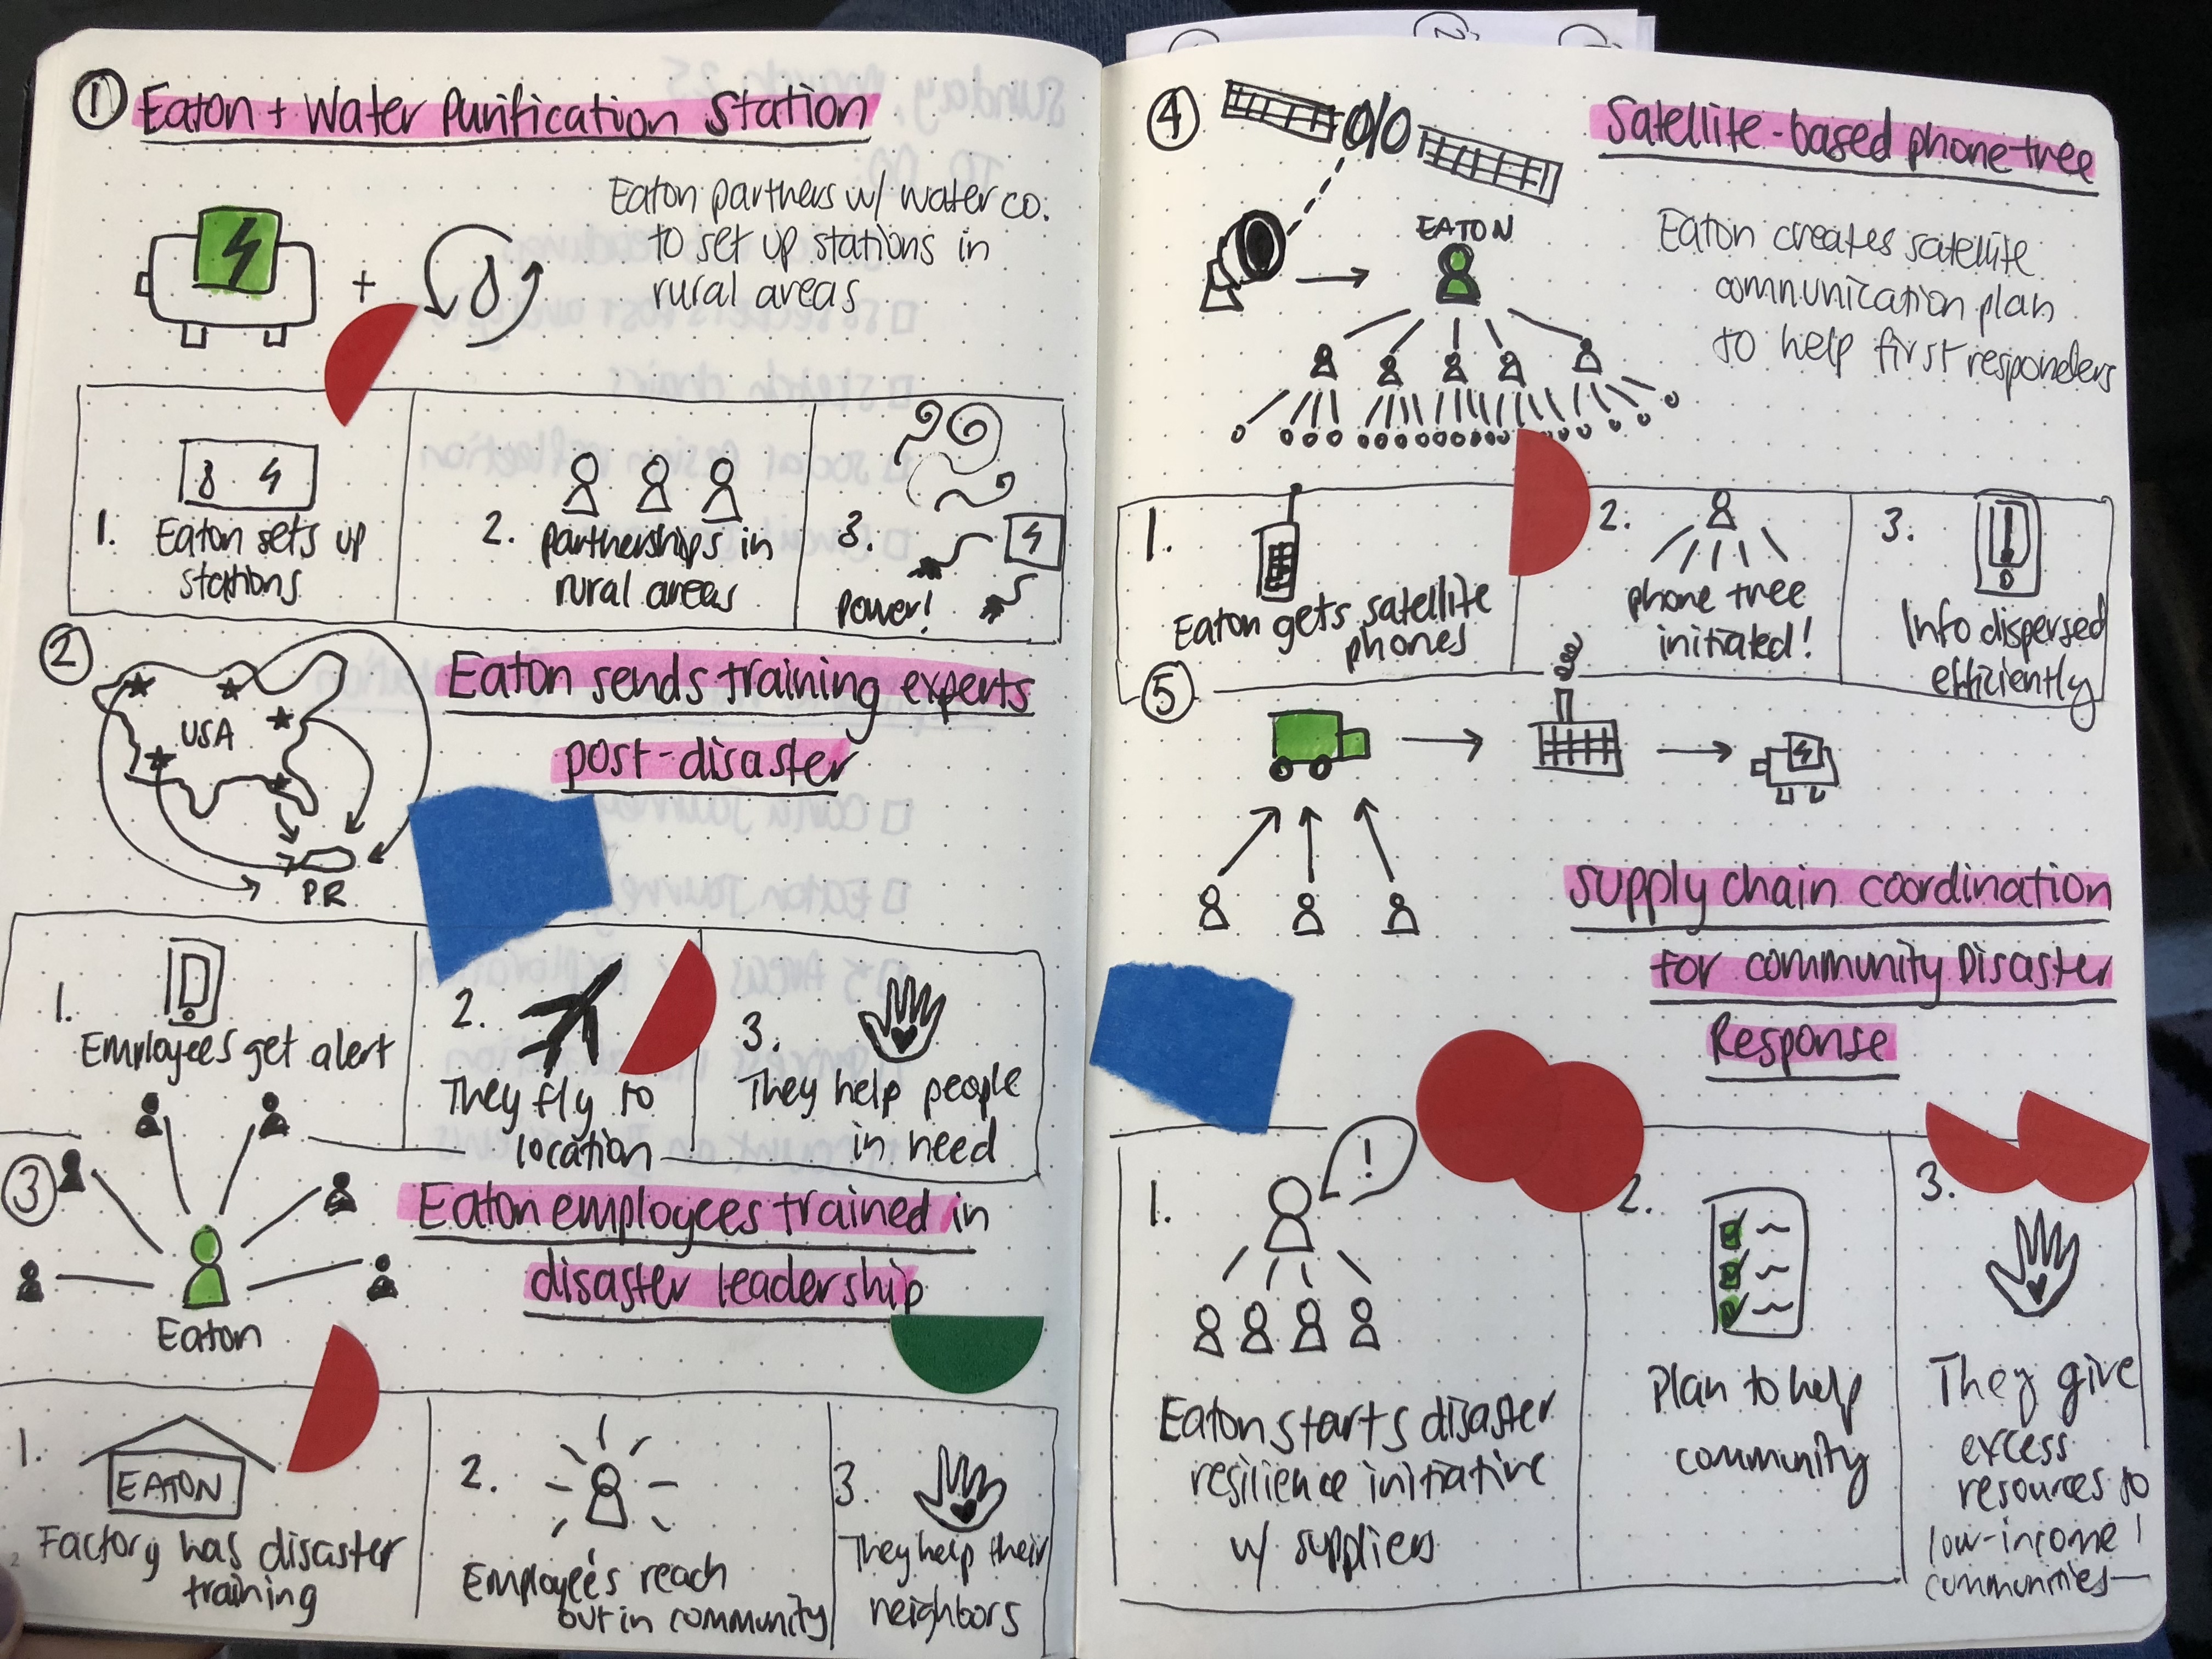 1 Eaton + Water Purification Station
Eaton partners w/ water co.
to set up stations in
rural areas
+
1. Eaton sets up
stations
2. partnerships in
rural areas
3.
Power!
2 Eaton sends training experts
post-disaster
USA
PR
1.
Employees get alert
2.
They fly to
location
3.
They help people
in need
3 Eaton employees trained in
disaster leadership
Eaton
1.
EATON
Factory has disaster
training
2.
Employees reach
out in community
3.
They help their
neighbors
4 Satellite-based phone tree
EATON
Eaton creates satellite
communication plan
to help first responders
1.
Eaton gets satellite
phones
2.
phone tree
initiated!
3.
Info dispersed
efficiently
5
Supply chain coordination
for community Disaster
Response
1.
!
Eaton starts disaster
resilience initiative
w/ suppliers
2.
Plan to help
community
3.
They give
excess
resources to
low-income
communities